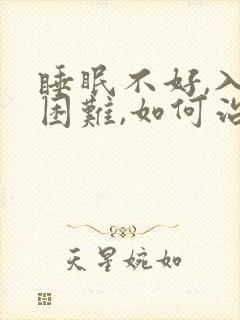 睡眠不好,入
困難,如何治
天星婉如